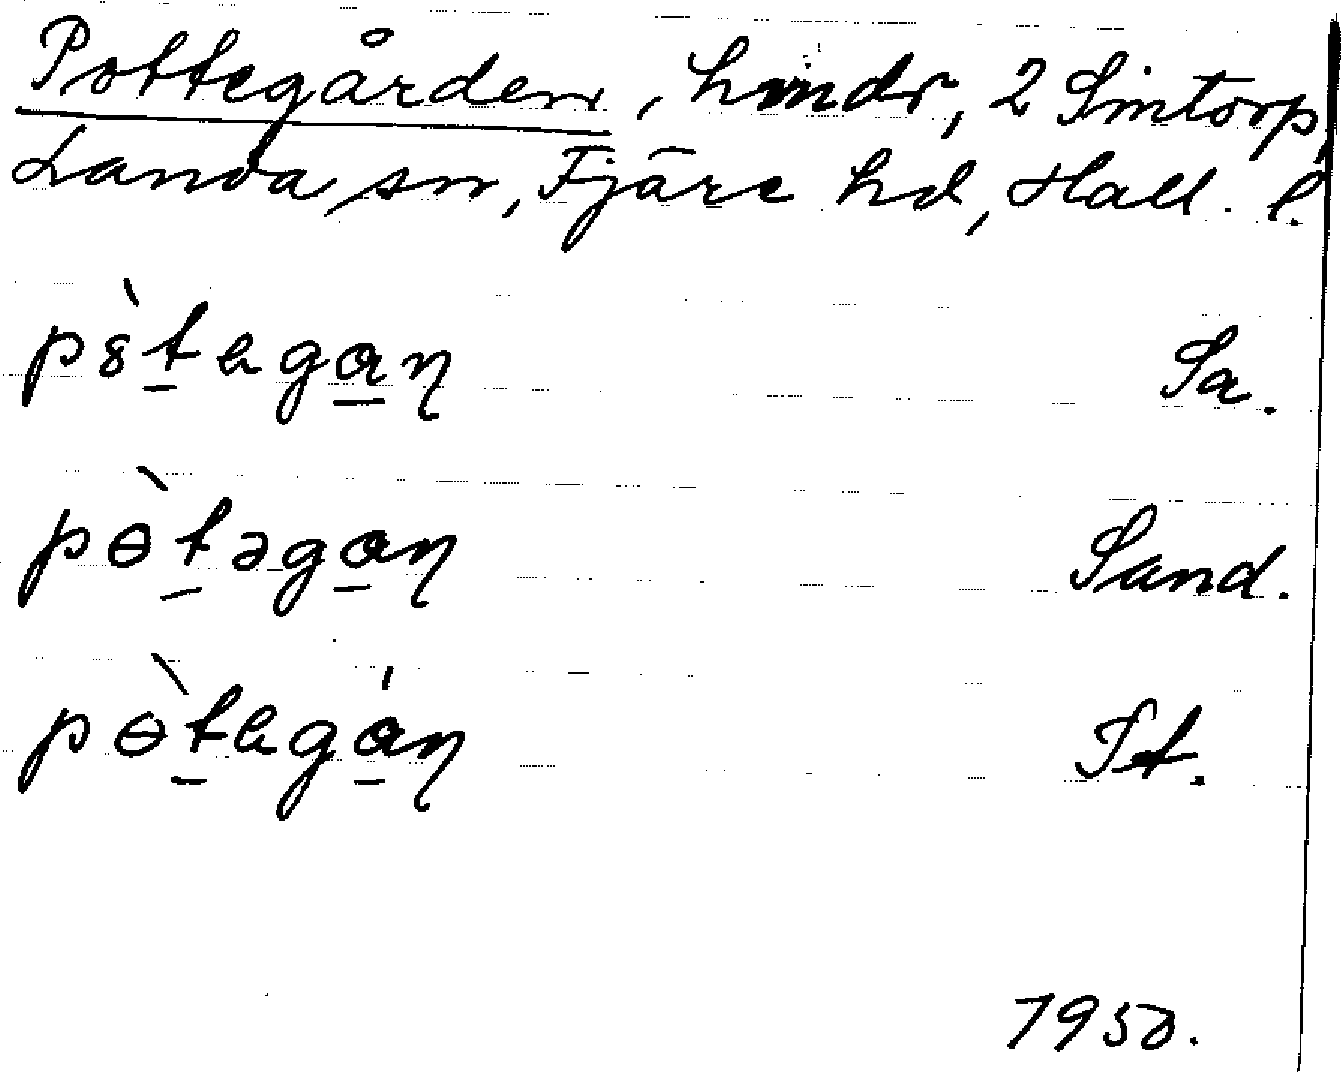 Pottegården, hmdr, 2 Sintorp,
Landa sn, Fjäre hd, Hall. l.
pȣ̀t̲ega̲ɳ Sa.
pɵ̀t̲əga̲ɳ Sand.
pɵ̀t̲egá̲ɳ Tt.
1950.